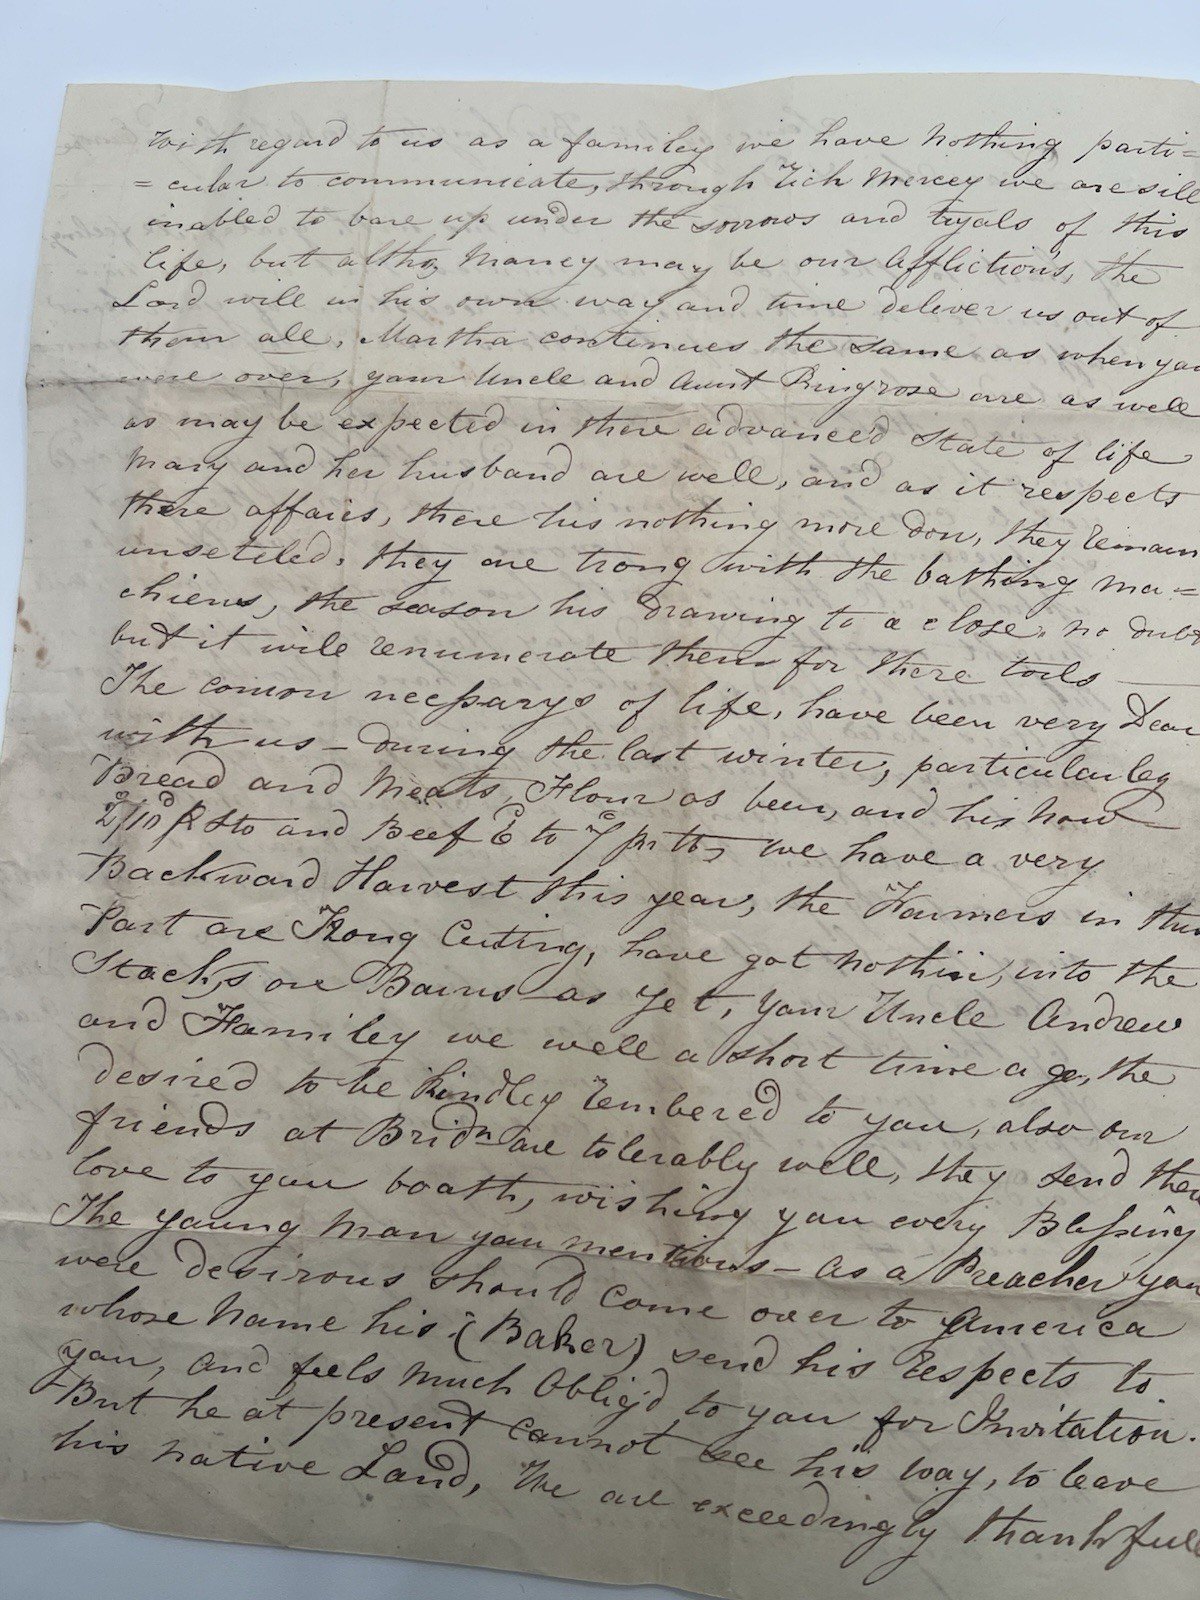 With regard to us as a familey we have Nothing parti=
=cular to communicate, through Rich Mercey we are sill
inabled to bare up under the sorrows and tryals of this
life, but altho, Maney may be our afflictions, the
Lord will in his own way and time deliver us out of
them all, Martha continues the same as when you
were over, your Uncle and Aunt Ringrose are as well
as may be expected in there advanced State of life
Mary and her husband are well, and as it respects
there affairs, there his nothing more don, they Remain
unsetteled, they are trong with the bathing ma=
chiens, the season his drawing to a close, no dubt
but it wile renumerate them for there toils
The comon necessarys of life, have been very Dear
with us - during the last winter, particularley
Bread and Meats, Flour as been, and his now
2/10 Sto and Beef 6 to 7 pr lb, we have a very
Backward Harvest this year, the Farmers in this
Part are Throng Cuting, have got nothin, into the
Stacks, are Barns as yet, your Uncle Andrew
and Familey we well a short time ago, the
desired to be kindley Rembered to you, also our
friends at Bridn are tolerably well, they send there
love to you boath, wishing you every Blessing
The young man you mentions - as a Preacher you
were desirous should come over to America
whose Name his (Baker) send his Respects to
you, and feels much Oblig'd to you for Invitation.
But he at present cannot see his way, to leave
his native Land, the are exceedingly thankfull